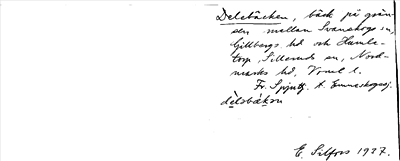 Delebäcken, bäck på grän-
sen mellan Svanskogs sn,
Gillbergs hd och Humle-
torp, Silleruds sn, Nord-
marks hd, Vrml l.
Fr. S. A. Emneskogssj.
dèlsbäkən
E. Silfors 1927.